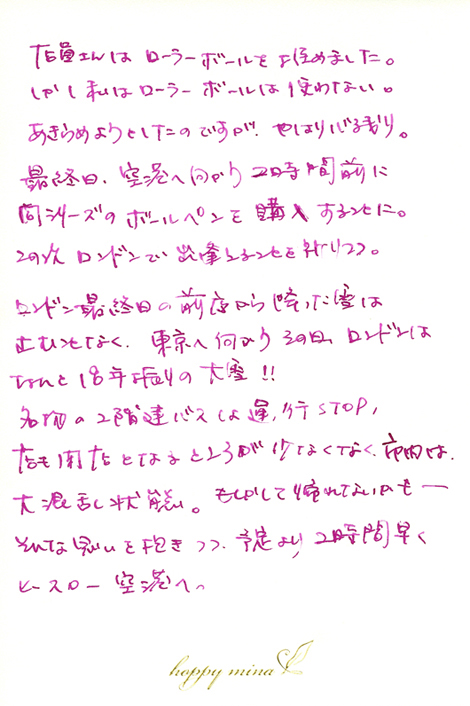 店員さんは ローラーボールを お薦めました。
しかし 私は ローラーボールは 使わない。
あきらめようとしたのですが、やはり心残り。
最終日、空港へ向かう 2時間前に
同シリーズの ボールペンを 購入 することに。
この次 ロンドンで 出逢えることを 祈りつつ。
ロンドン最終日の 前夜から 降った雪は
止むことなく、東京へ向かう その日、ロンドンは
なんと 18年振りの 大雪!!
名物の 2階建バスは 運行STOP,
店も 閉店となるところが 少なくなく、市内は、
大混乱状態。もしかして 帰れないかも ー
そんな思いを 抱きつつ、予定より 2時間早く
ヒースロー 空港へ。
happy mina